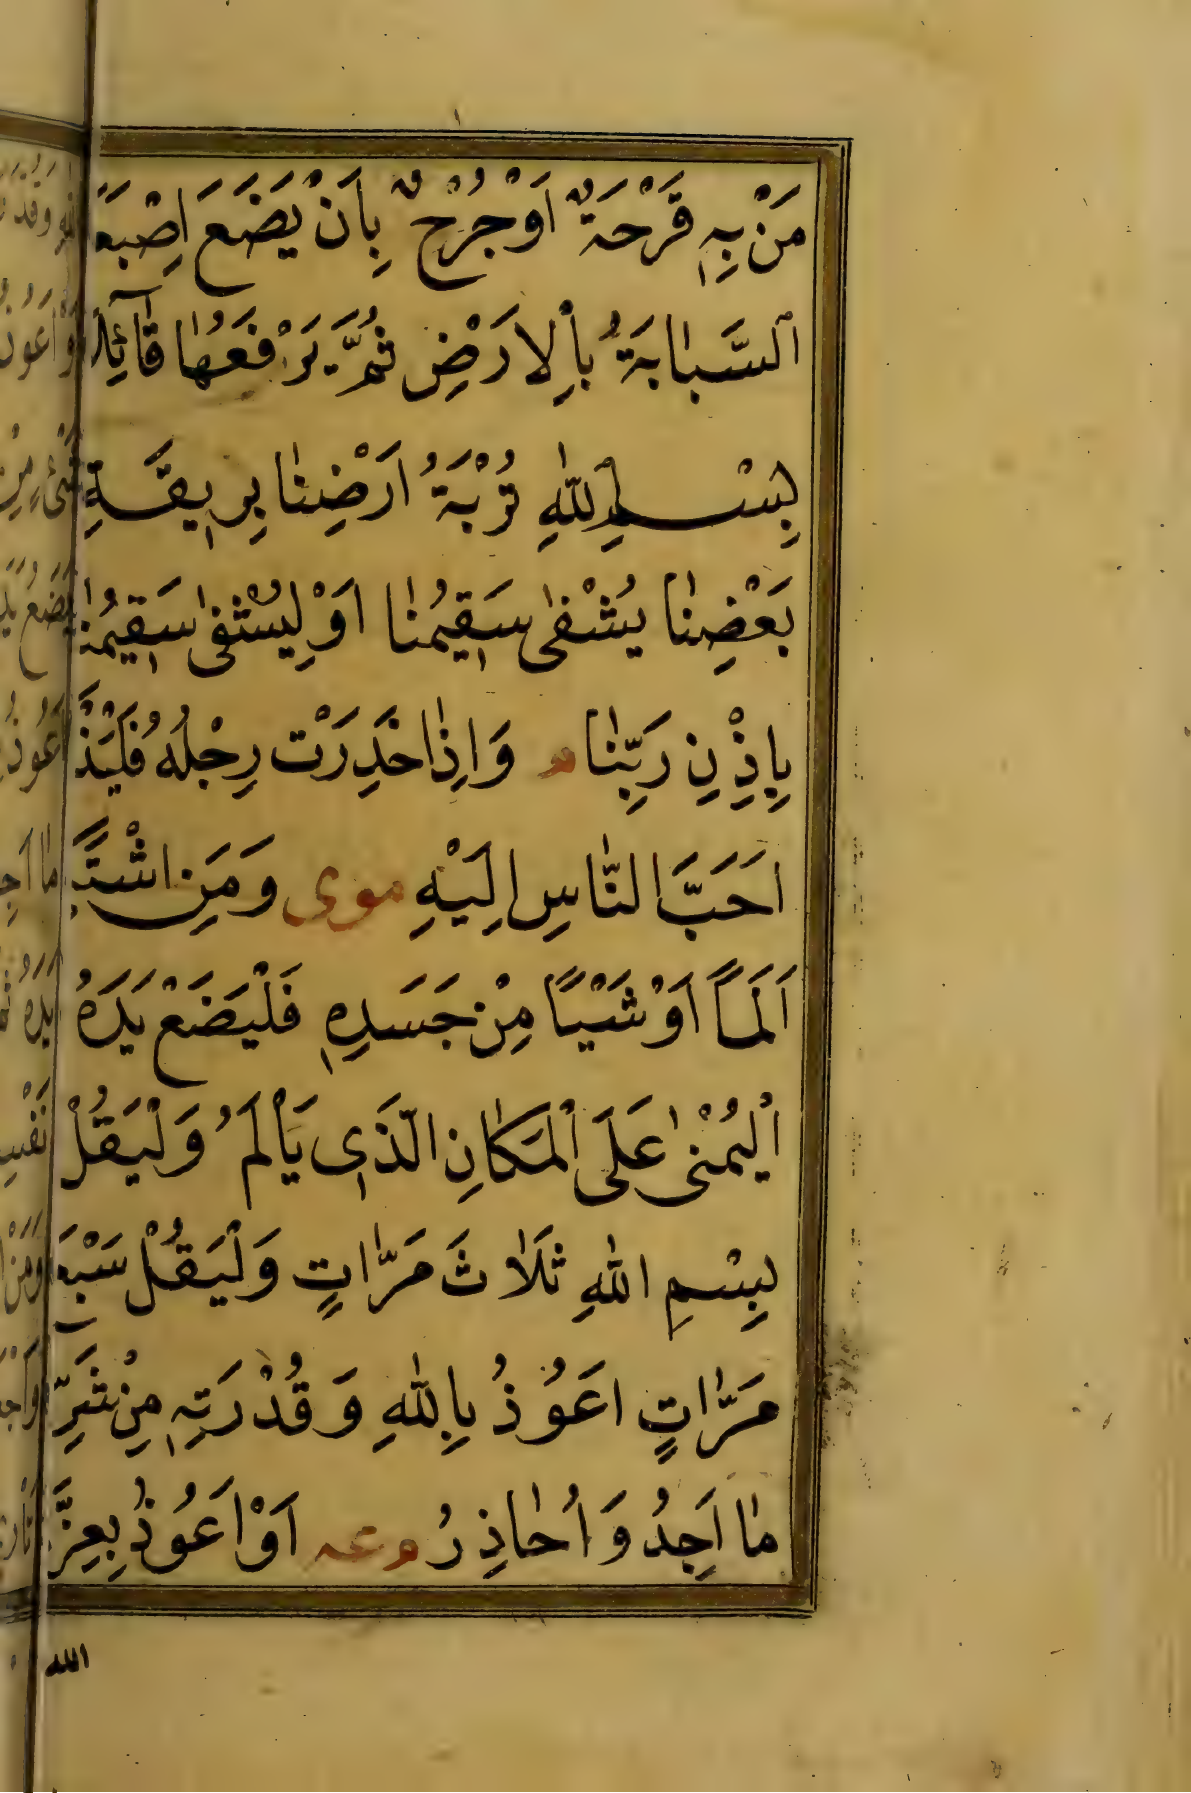 مَنْ بِهٖ قَرْحَةٌ اَوْ جُرْحٌ بِاَنْ يَضَعَ اِصْبَعَ
اَلسَّبَّابَةَ بِاْلاَرْضِ ثُمَّ يَرْفَعُهَا قَآئِلاً
بِسْمِ اللّٰهِ تُرْبَةُ اَرْضِنَا بِرِيقَةِ
بَعْضِنَا يُشْفٰى سَقِيمُنَا اَوْ لِيُشْفٰى سَقِيمُنَا
بِاِذْنِ رَبِّنَا م وَاِذَا خَدِرَتْ رِجْلُهُ فَلْيَذْ
اَحَبَّ النَّاسِ اِلَيْهِ موى وَمَنِ اشْتَ
اَلَمًا اَوْ شَيْئًا مِنْ جَسَدِهٖ فَلْيَضَعْ يَدَهُ
اْليُمْنٰى عَلَى اْلمَكَانِ الَّذِى يَاْلَمُ وَلْيَقُلْ
بِسْمِ اللهِ ثَلَاثَ مَرَّاتٍ وَلْيَقُلْ سَبْعَ
مَرَّاتٍ اَعُوذُ بِاللّٰهِ وَقُدْرَتِهٖ مِنْ شَرِّ
مَا اَجِدُ وَاُحَاذِرُ م عه اَوْ اَعُوذُ بِعِزَّ
الله